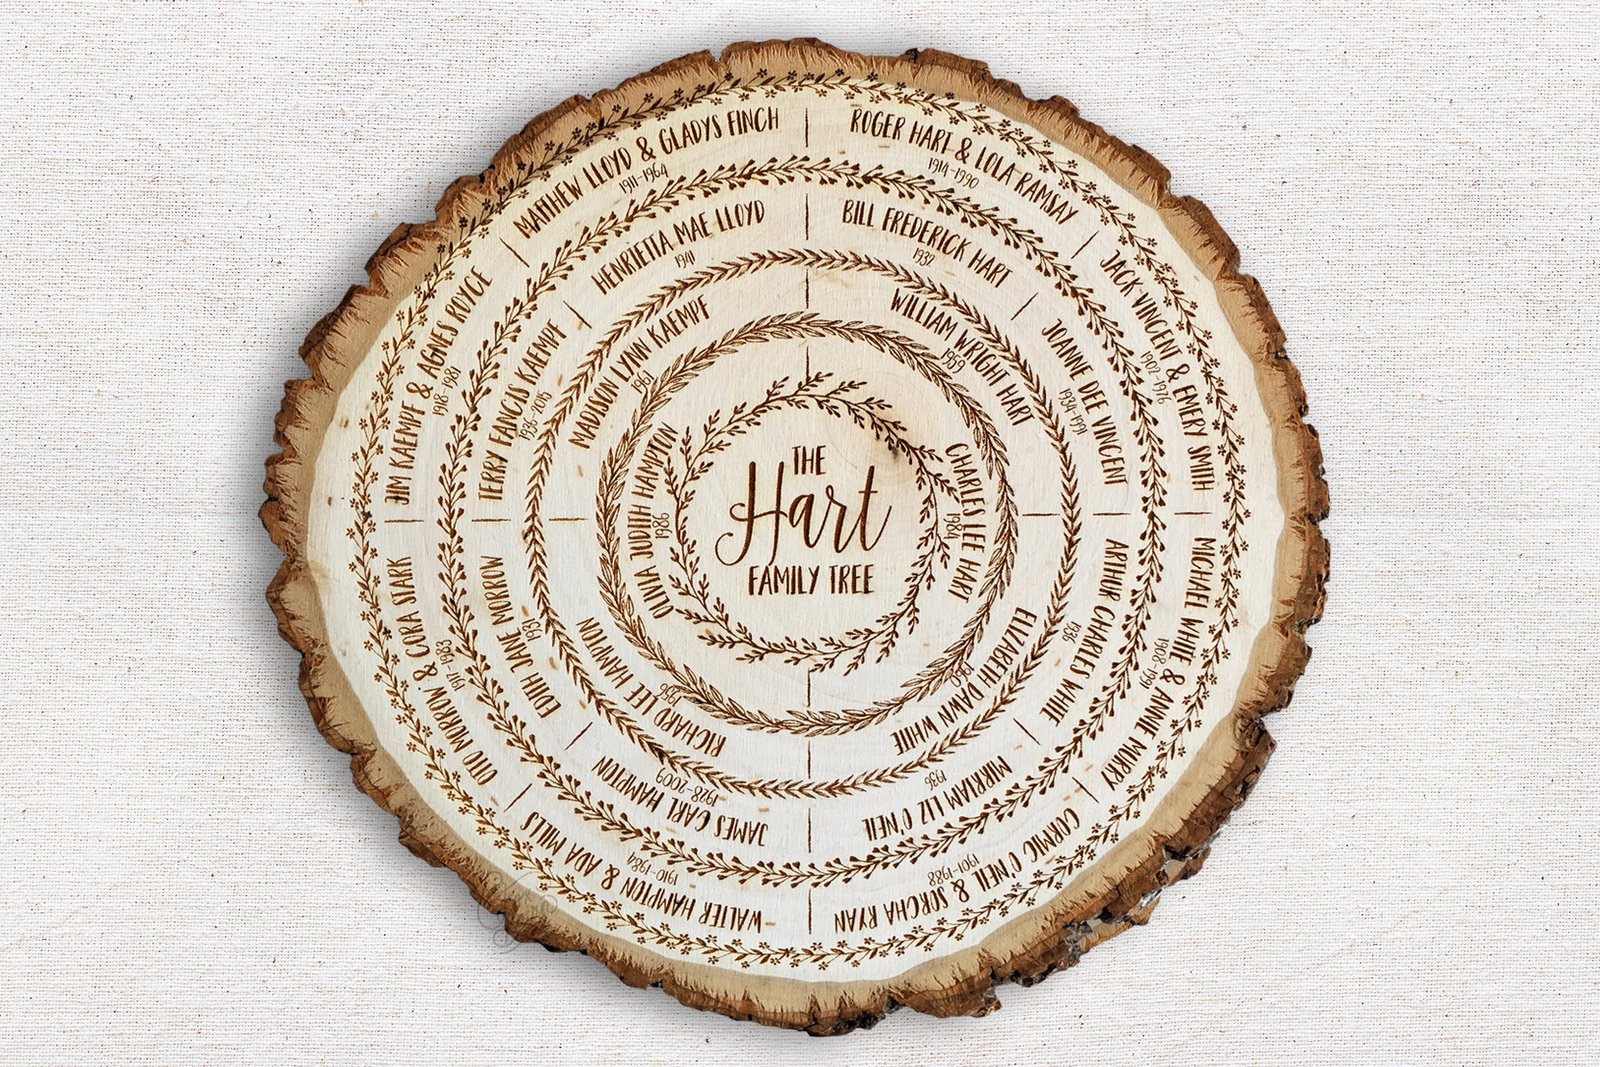 THE
Hart
FAMILY TREE
OLIVIA JUDITH HAMPTON
1986
CHARLES LEE HART
1984
MADISON LYNN KAEMPF
WILLIAM WRIGHT HART
1959
ELIZABETH DAWN WHITE
1960
RICHARD LEE HAMPTON
1956
HENRIETTA MAE LLOYD
1941
BILL FREDERICK HART
1937
JOANNE DEE VINCENT
1934-1991
ARTHUR CHARLES WHITE
1936
MIRRIAM LIZ O'NEIL
1936
JAMES CARL HAMPTON
1928-2009
EDITH JANE MORROW
1931
TERRY FANCIS KAEMPF
1936-2015
MATTHEW LLOYD & GLADYS FINCH
1911-1964
ROGER HART & LOLA RAMSAY
1914-1990
JACK VINCENT & EMERY SMITH
1902-1976
MICHAEL WHITE & ANNIE MURRY
1908-1991
CORMIC O'NEIL & SORCHA RYAN
1901-1988
WALTER HAMPTON & ADA MILLS
1910-1984
OTTO MORROW & CORA STARK
1917-1983
JIM KAEMPF & AGNES ROYCE
1918-1981